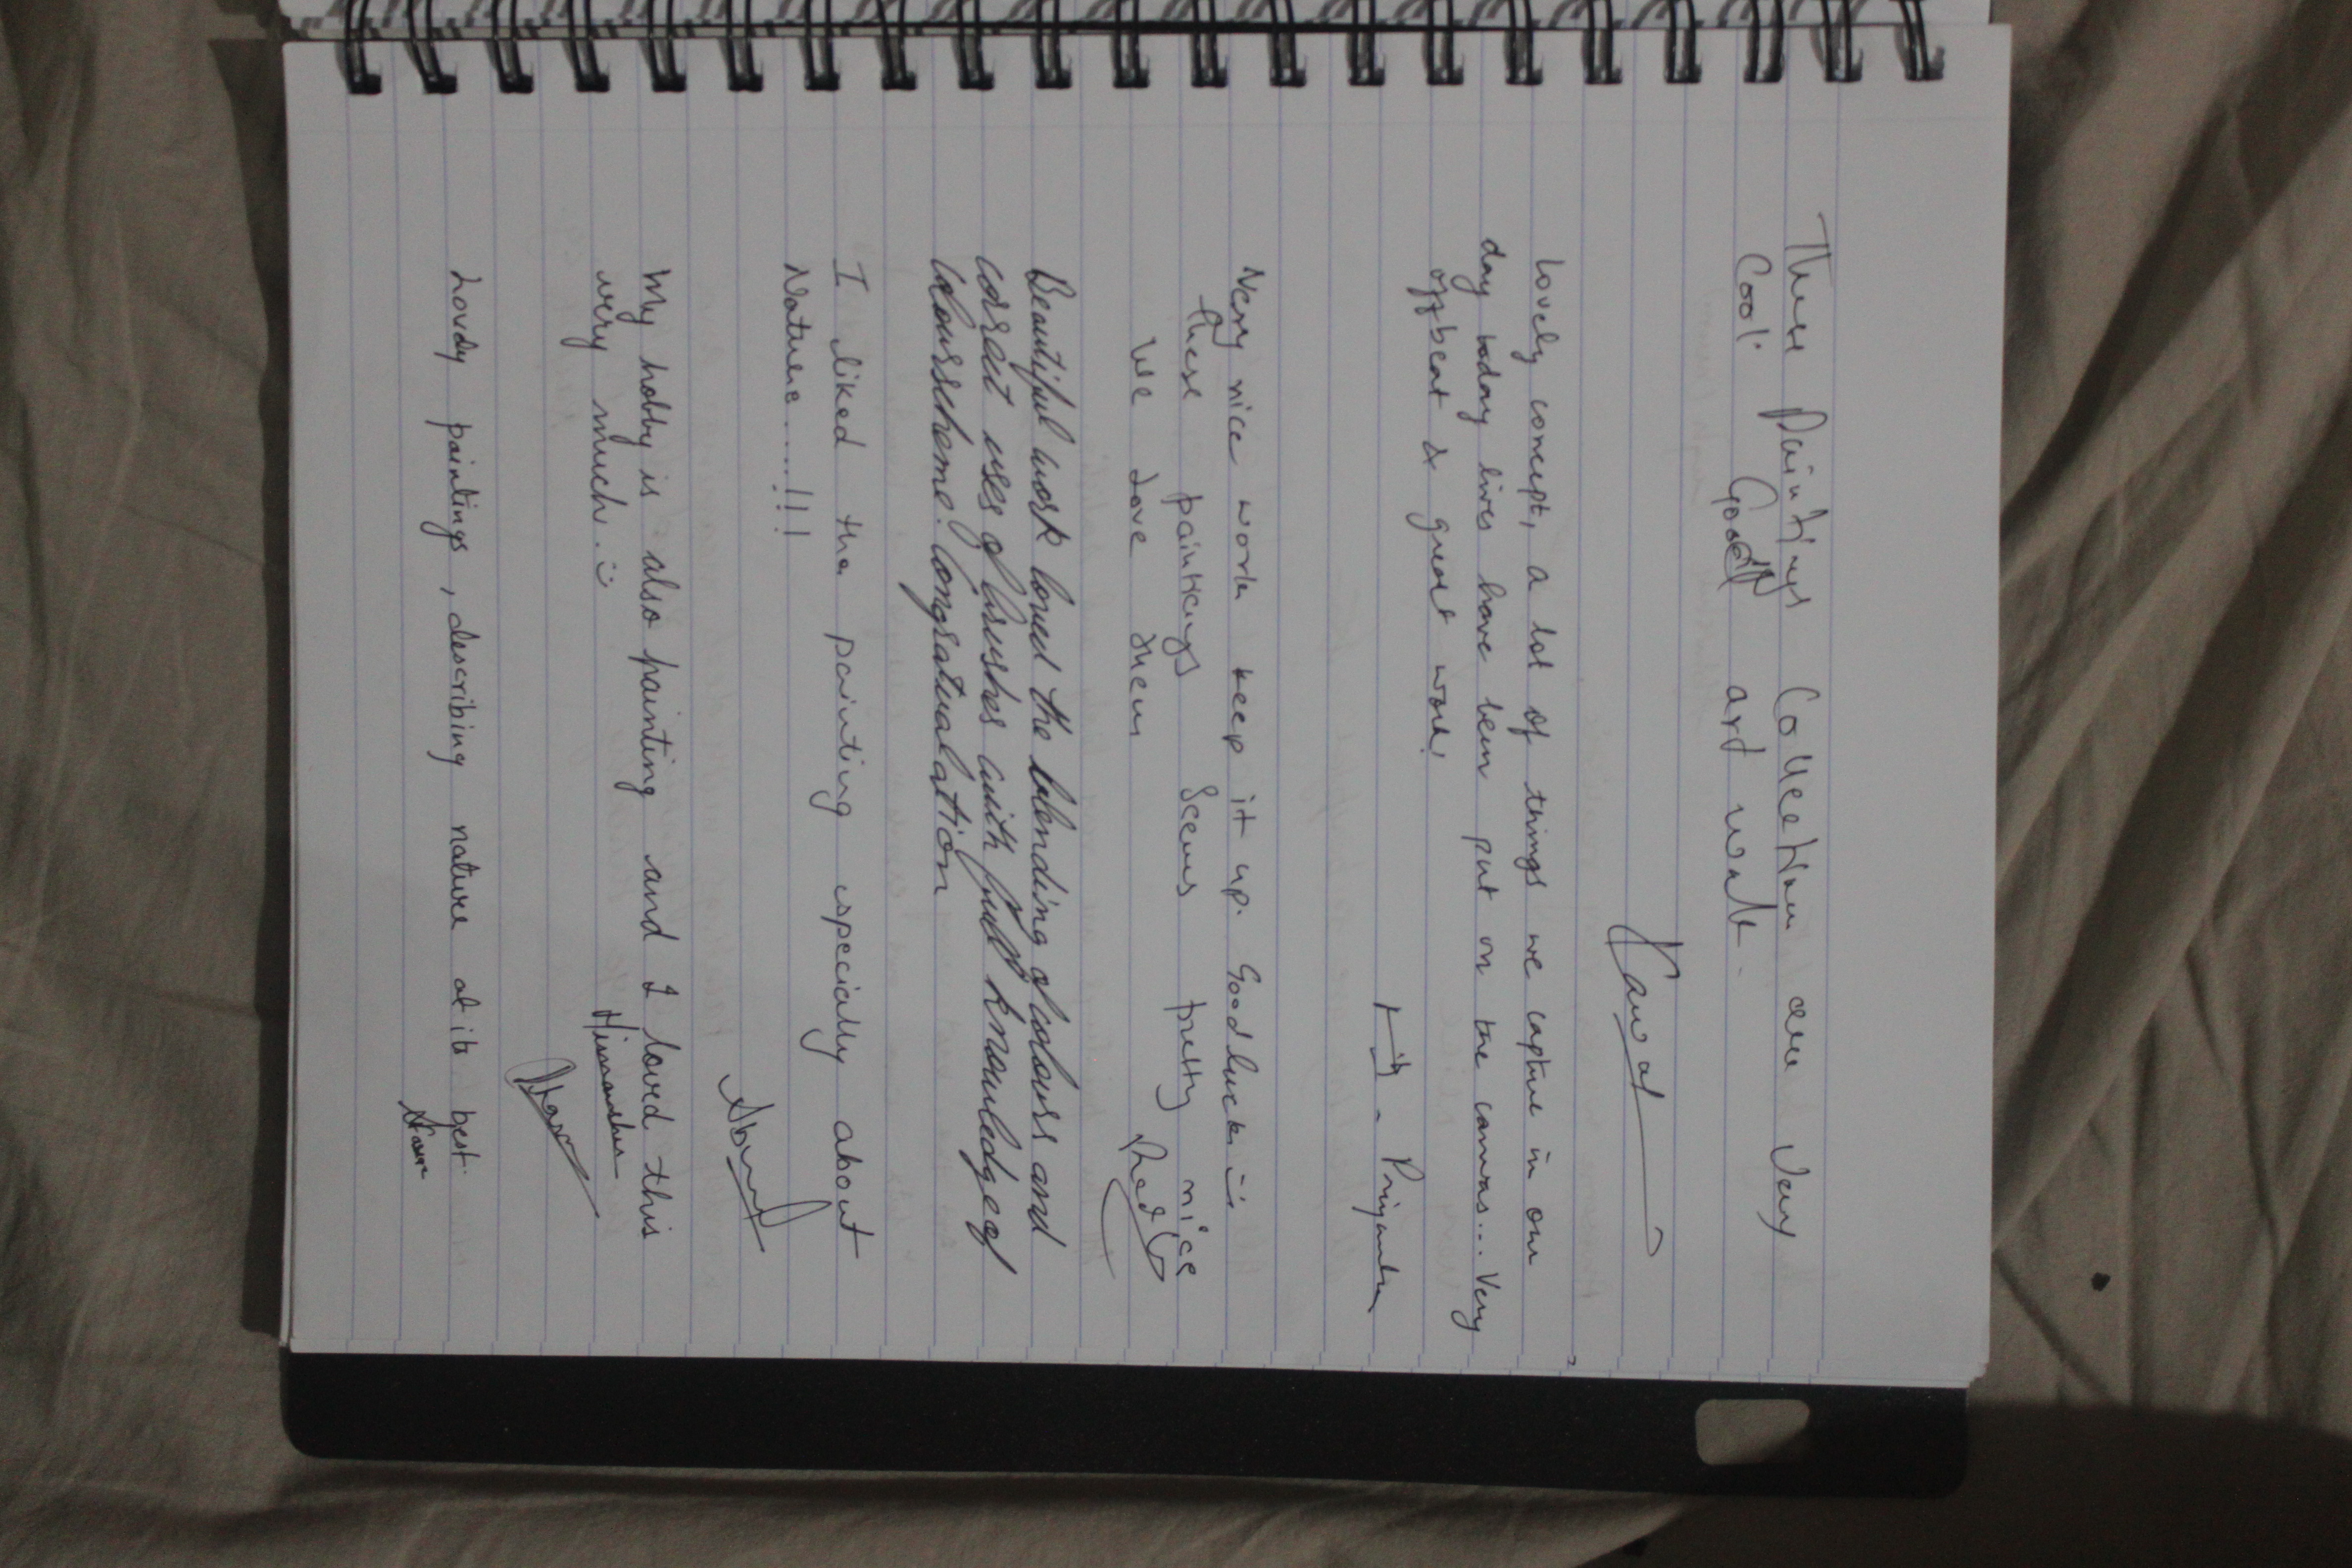 These Paintings Collection are very
Cool. Good art work.
Rawat
lovely concept, a lot of things we capture in our
day today lives have been put on the canvas... Very
offbeat & great work!
- Priyanka
Very nice work keep it up. Good luck :)
these paintings seems pretty nice
we love them
Beautiful work loved the blending of colours and
correct uses of brushes with full knowledge of
colourscheme. Congratualation
I liked the painting especially about
Nature .....!!!
My hobby is also painting and I loved this
very much. :)
Himanshu
Lovely paintings, describing nature at its best.